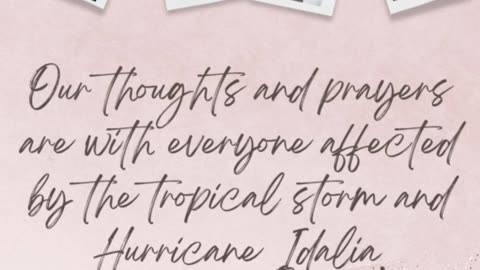 Our thoughts and prayers
are with everyone affected
by the tropical storm and
Hurricane Idalia